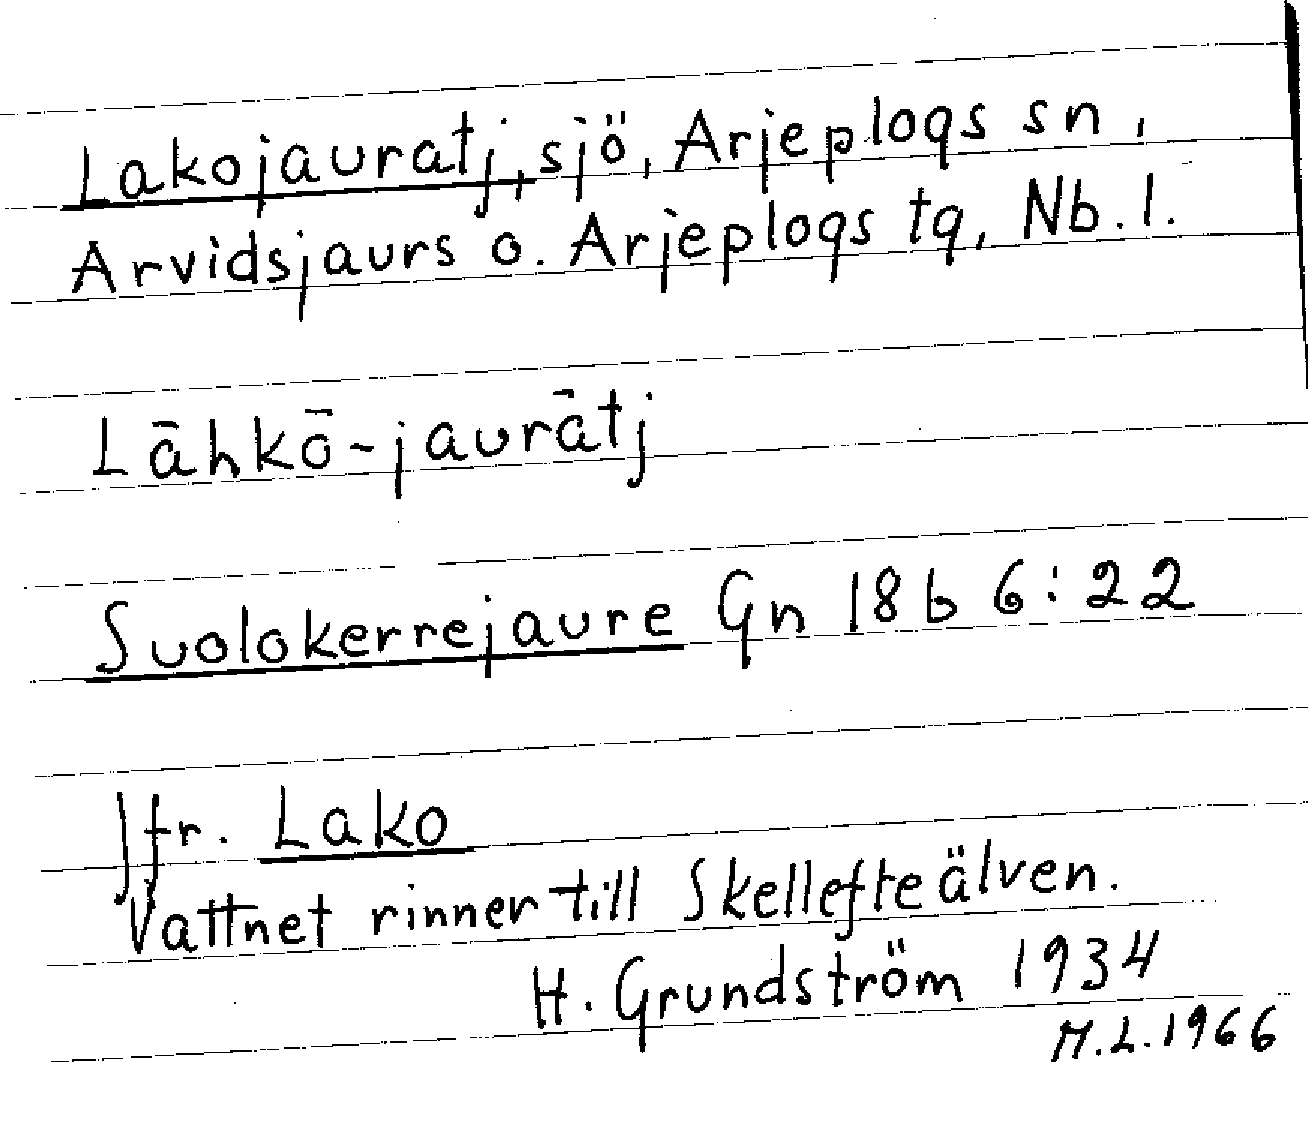 Lakojauratj, sjö, Arjeplogs sn,
Arvidsjaurs o. Arjeplogs tg, Nb. l.
Lāhkō-jaurātj
Suolokerrejaure Gn 18 b 6:22
Jfr. Lako
Vattnet rinner till Skellefteälven.
H. Grundström 1934
M.L. 1966